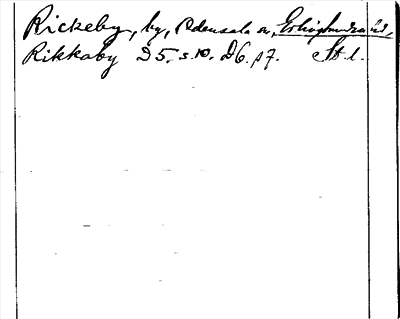 Rickeby, by, Odensala sn, Erlinghundra hd,
Rikkaby D 5. s. 10. D6. p7. St. l.